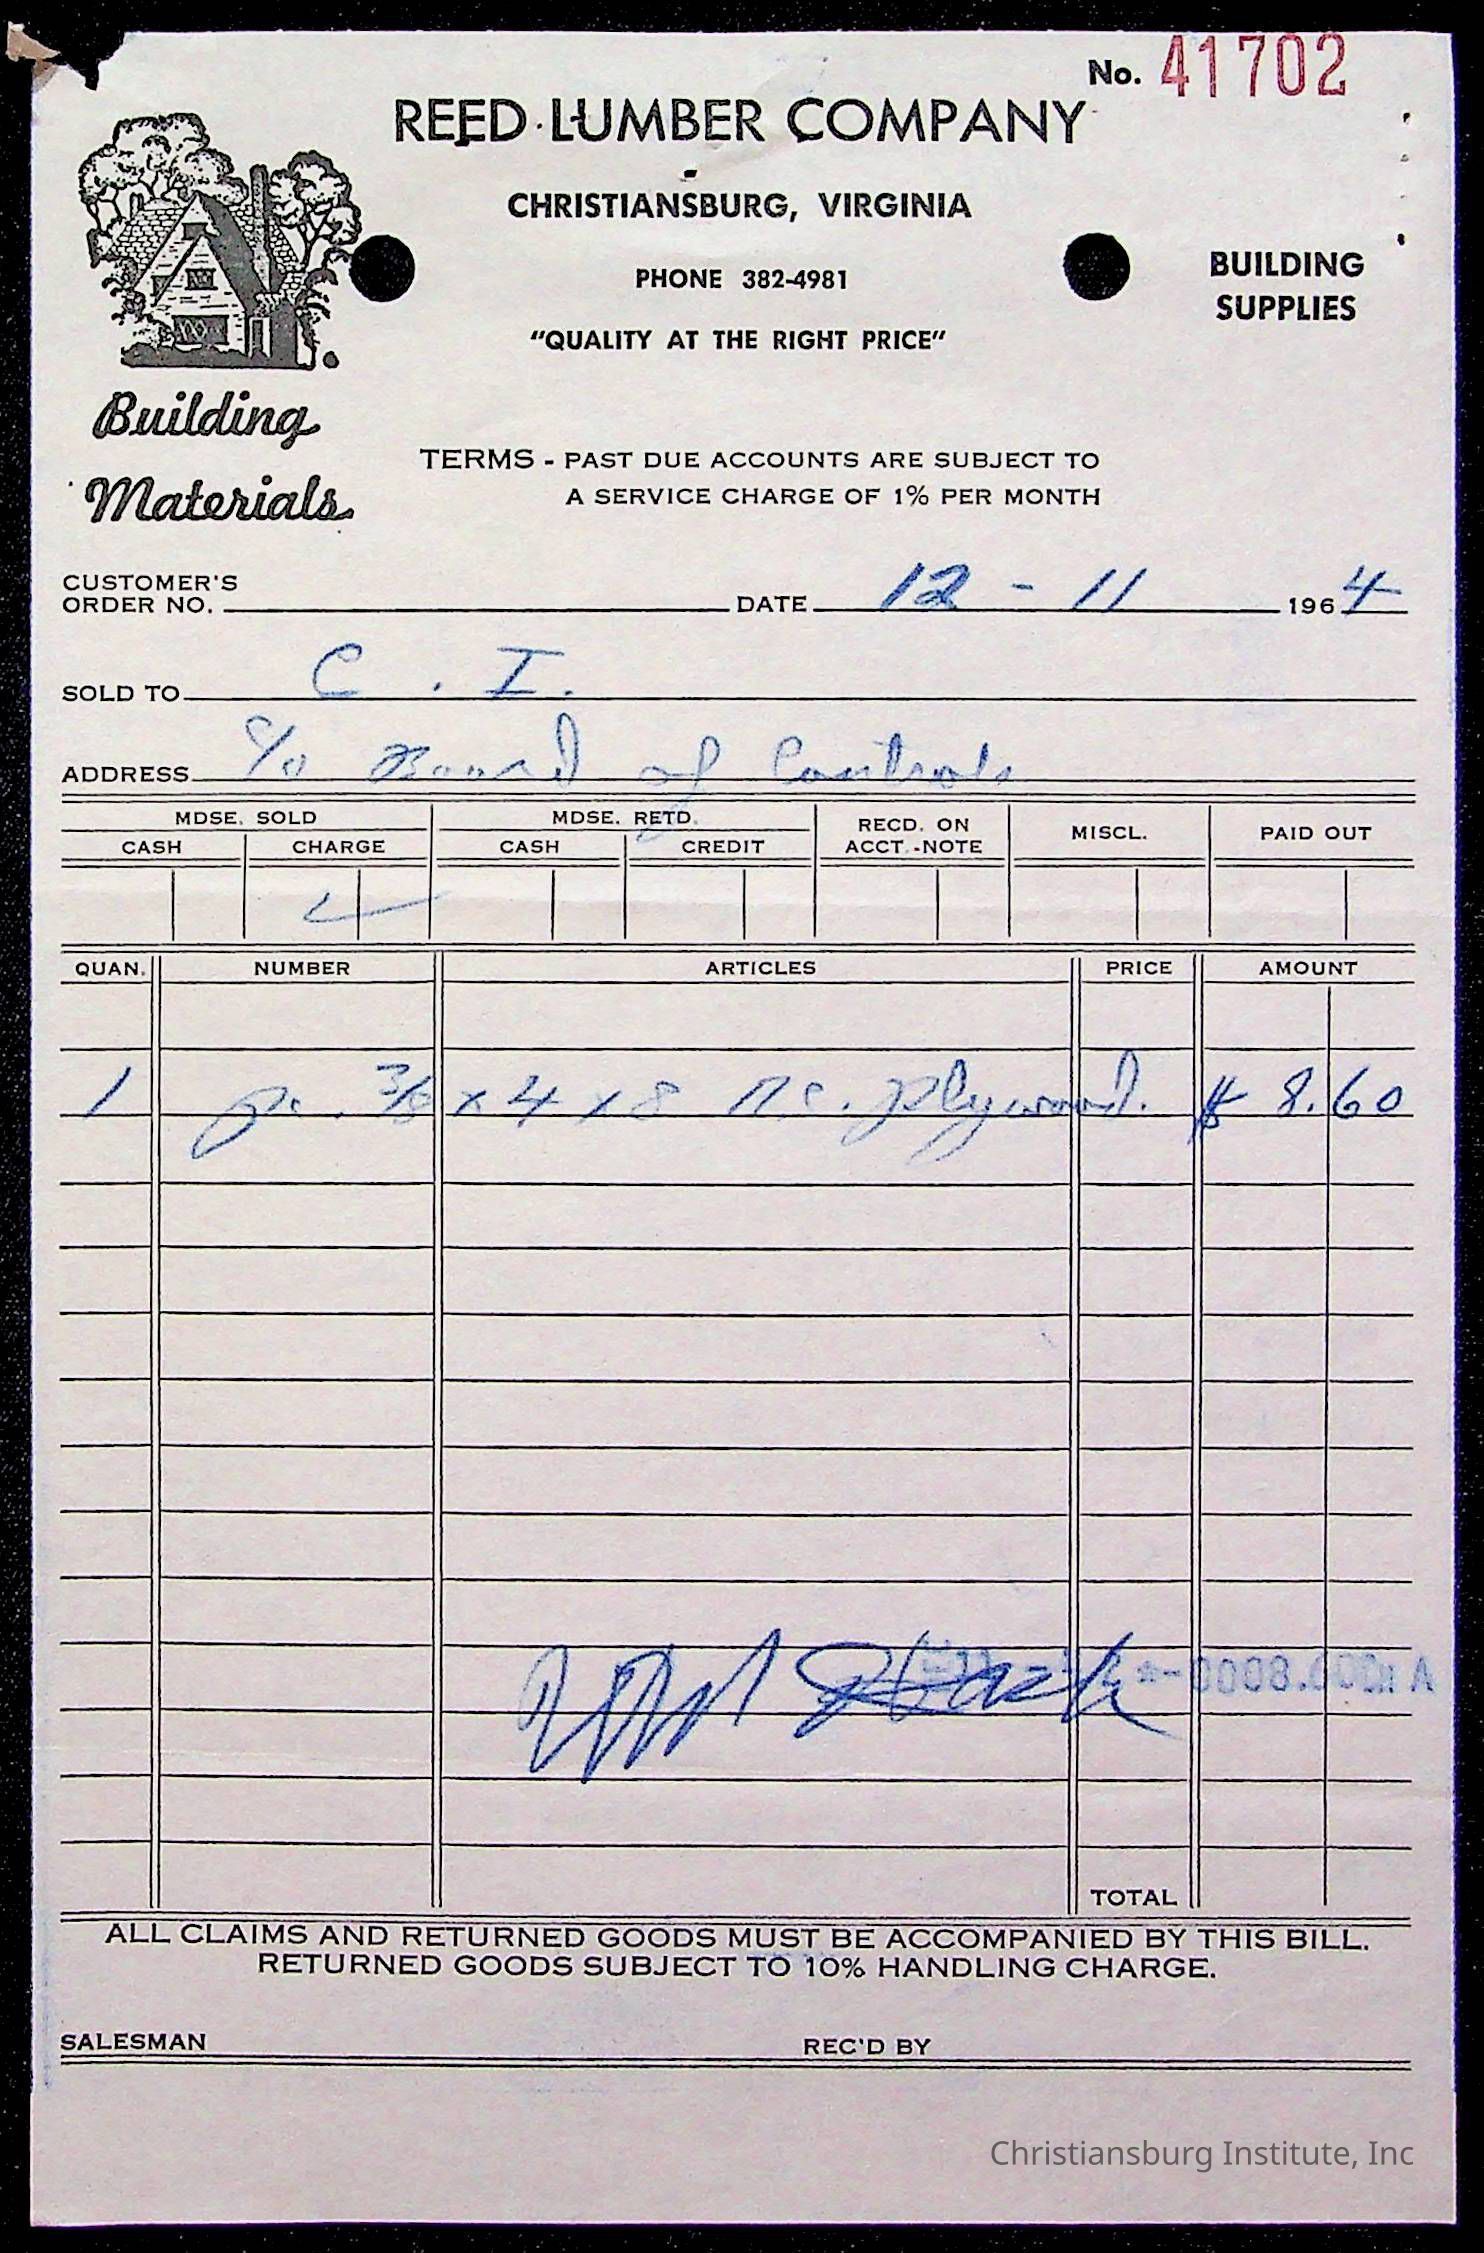 No. 41702
REED LUMBER COMPANY
CHRISTIANSBURG, VIRGINIA
PHONE 382-4981
"QUALITY AT THE RIGHT PRICE"
BUILDING
SUPPLIES
Building
Materials
TERMS - PAST DUE ACCOUNTS ARE SUBJECT TO
A SERVICE CHARGE OF 1% PER MONTH
CUSTOMER'S
ORDER NO. DATE 12 - 11 1964
SOLD TO C. I.
ADDRESS c/o Board of Controls
MDSE. SOLD MDSE. RETD. RECD. ON ACCT.-NOTE MISCL. PAID OUT
CASH CHARGE CASH CREDIT
QUAN. NUMBER ARTICLES PRICE AMOUNT
1 pc. 3/8 x 4 x 8 plywood. $ 8.60
TOTAL
ALL CLAIMS AND RETURNED GOODS MUST BE ACCOMPANIED BY THIS BILL.
RETURNED GOODS SUBJECT TO 10% HANDLING CHARGE.
SALESMAN REC'D BY
Christiansburg Institute, Inc